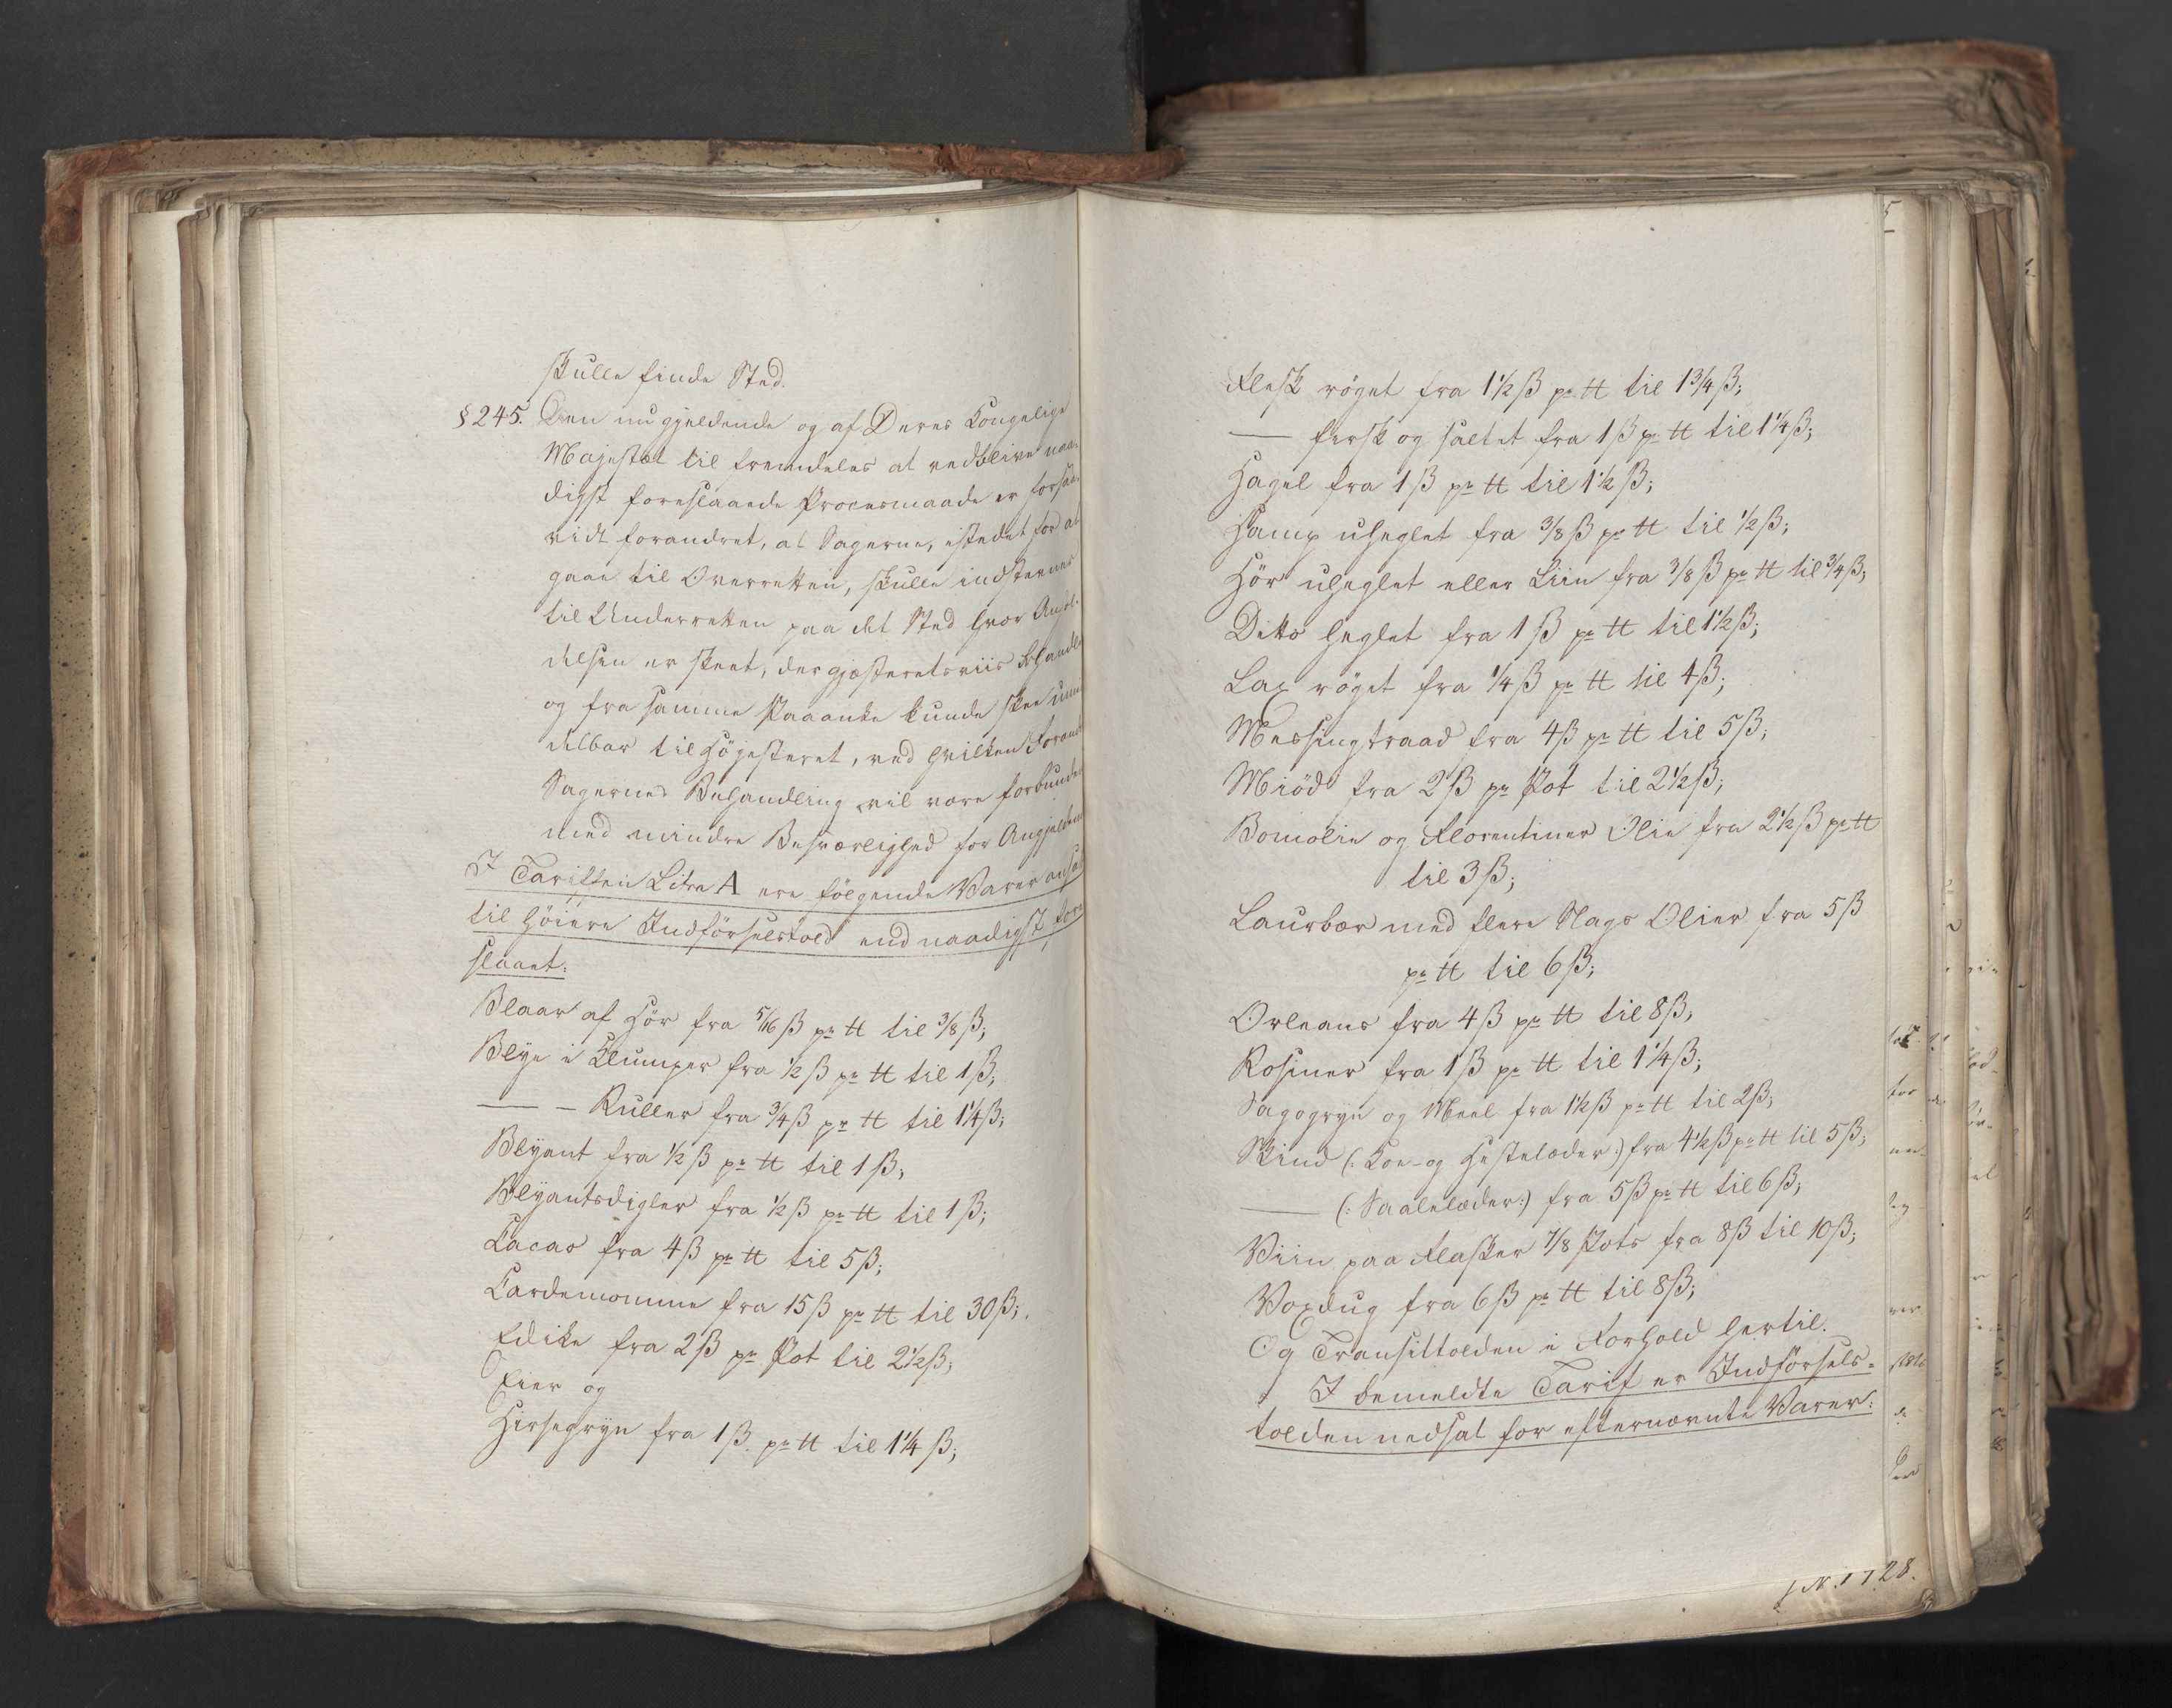 skulle finde Sted.
§ 245. Den nu gjeldende og af Deres Kongelige
Majestæt til fremdeles at vedblive naa-
digst foreslaaede Procesmaade er forsaa-
vidt forandret, at Sagerne, istedet for at
gaae til Overretten, skulle indstevnes
til Underretten paa det Sted hvor Anhol-
delsen er skeet, der gjæsteretsviis behandles
og fra samme Paaanke kunde skee umid
delbar til Høiesteret, ved hvilken Forandr
Sagernes Behandling vil være forbunden
med mindre Besværlighed for Angjeldende
I Tariffen Litra A ere følgende Varer ansat
til høiere Indførselstold end naadigst fore
slaaet:
Blaar af Hør fra 5/16 ß pr ℔ til 3/8 ß;
Blye i Klumper fra 1/2 ß pr ℔ til 1 ß;
—— — Ruller fra 3/4 ß pr ℔ til 1 1/4 ß;
Blyant fra 1/2 ß pr ℔ til 1 ß;
Blyantsdigler fra 1/2 ß pr ℔ til 1 ß;
Cacao fra 4 ß pr ℔ til 5 ß;
Cardemomme fra 15 ß pr ℔ til 30 ß;
Edike fra 2 ß pr Pot til 2 1/2 ß;
Hirsegryn fra 1 ß pr ℔ til 1 1/4 ß;
Flesk røget fra 1 1/2 ß pr ℔ til 1 3/4 ß;
—— fersk og saltet fra 1 ß pr ℔ til 1 1/4 ß;
Hagel fra 1 ß pr ℔ til 1 1/2 ß;
Hamp uheglet fra 3/8 ß pr ℔ til 1/2 ß;
Hør uheglet eller Liin fra 3/8 ß pr ℔ til 3/4 ß;
Ditto heglet fra 1 ß pr ℔ til 1 1/2 ß;
Lax røget fra 1/4 ß pr ℔ til 4 ß;
Messingtraad fra 4 ß pr ℔ til 5 ß;
Miød fra 2 ß pr Pot til 2 1/2 ß;
Bomolie og Florentiner Olie fra 2 1/2 ß pr ℔
til 3 ß;
Laurbær med flere Slags Olier fra 5 ß
pr ℔ til 6 ß;
Orleans fra 4 ß pr ℔ til 8 ß;
Rosiner fra 1 ß pr ℔ til 1 1/4 ß;
Sagogryn og Meel fra 1 1/2 ß pr ℔ til 2 ß;
Skind (: Koe- og Hestelæder :) fra 4 1/2 ß pr ℔ til 5 ß;
—— (: Saalelæder :) fra 5 ß pr ℔ til 6 ß;
Viin paa Flasker 7/8 Pots fra 8 ß til 10 ß;
Voxdug fra 6 ß pr ℔ til 8 ß;
Og Transittolden i Forhold hertil.
I bemeldte Tarif er Indførsels-
tolden nedsat for efternævnte Varer: